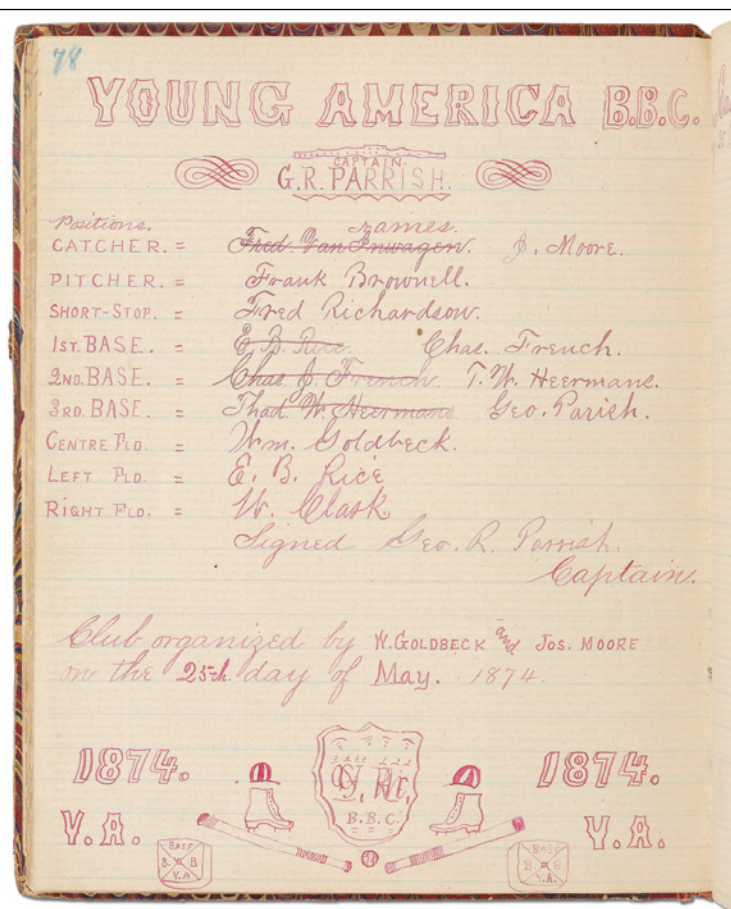 78
YOUNG AMERICA B.B.C.
CAPTAIN.
G.R. PARRISH.
Positions. names.
CATCHER. = Fred. Van Inwagen. J. Moore.
PITCHER. = Frank Brownell.
SHORT-STOP. = Fred Richardson.
1ST. BASE. = E. B. Rice Chas. French.
2ND. BASE. = Chas J. French. T. W. Heermans.
3RD. BASE. = Thad. W. Heermans Geo. Parish.
CENTRE FLD. = Wm. Goldbeck.
LEFT FLD. = E. B. Rice
RIGHT FLD. = W. Clark
Signed Geo. R. Parrish.
Captain.
Club organized by W. GOLDBECK and JOS. MOORE
on the 25th. day of May. 1874.
1874. 1874.
B.B.C.
Y.A. Y.A.
BASE BASE
B. B B. B
Y.A Y.A.